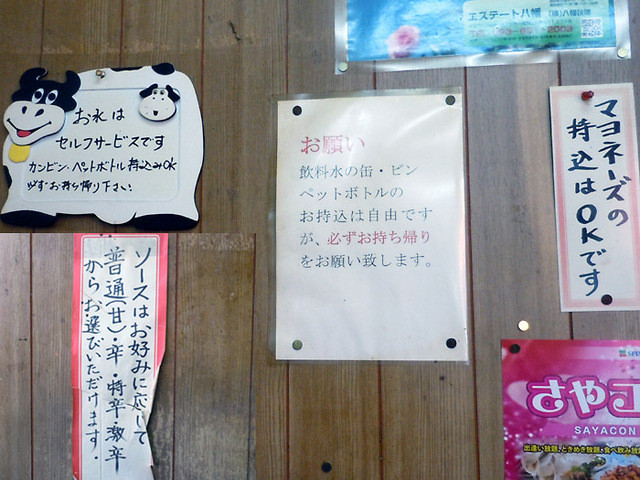 お水は
セルフサービスです
カンビン、ペットボトル持込みOK
必ずお持ち帰り下さい
お願い
飲料水の缶・ビン
ペットボトルの
お持込は自由です
が、必ずお持ち帰り
をお願い致します。
エステート八幡
マヨネーズの
持込はOKです
ソースはお好みに応じて
普通(甘)・辛・特辛・激辛
からお選びいただけます.
さやコ
SAYACON
出逢い放題、ときめき放題、食べ飲み放